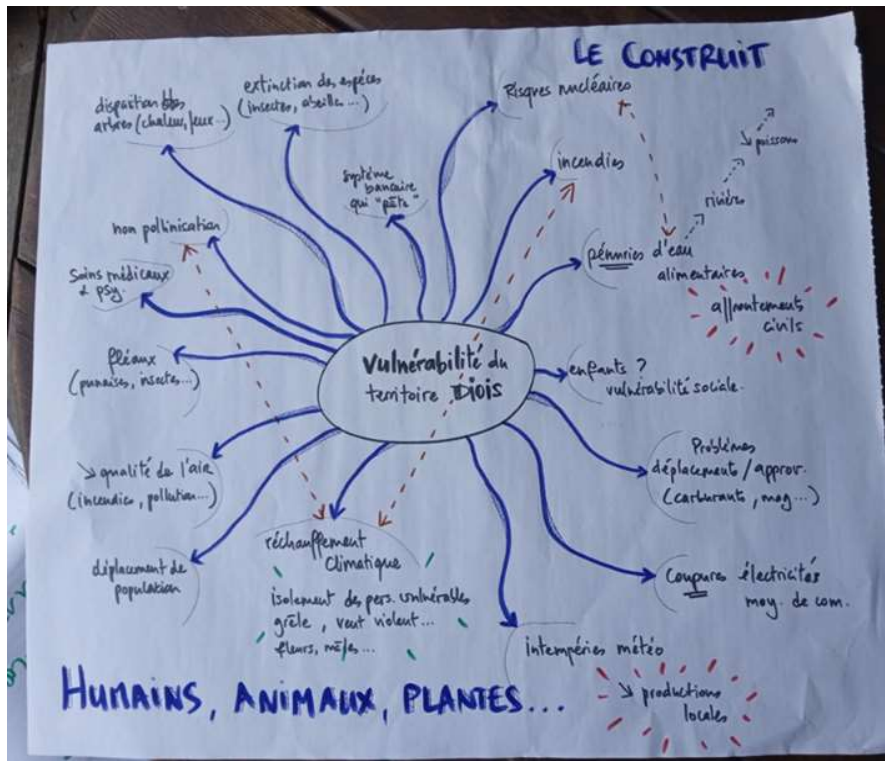 LE CONSTRUIT
disparition des
arbres (chaleur, feux...)
extinction des espèces
(insectes, abeille...)
système
bancaire
qui "pète"
Risques nucléaires
incendies
↘ poissons
rivière
pénuries d'eau
alimentaires
affrontements
civils
non pollinisation
Soins médicaux
& psy.
fléaux
(punaises, insectes...)
Vulnérabilité du
territoire Diois
enfants ?
vulnérabilité sociale.
Problèmes
déplacement / approv.
(carburants, mag...)
↘ qualité de l'air
(incendie, pollution...)
déplacement de
population
réchauffement
climatique
isolement des pers. vulnérables
grêle, vent violent...
fleurs,
Coupures électricités
moy. de com.
intempéries météo
↘ productions
locales
HUMAINS, ANIMAUX, PLANTES...